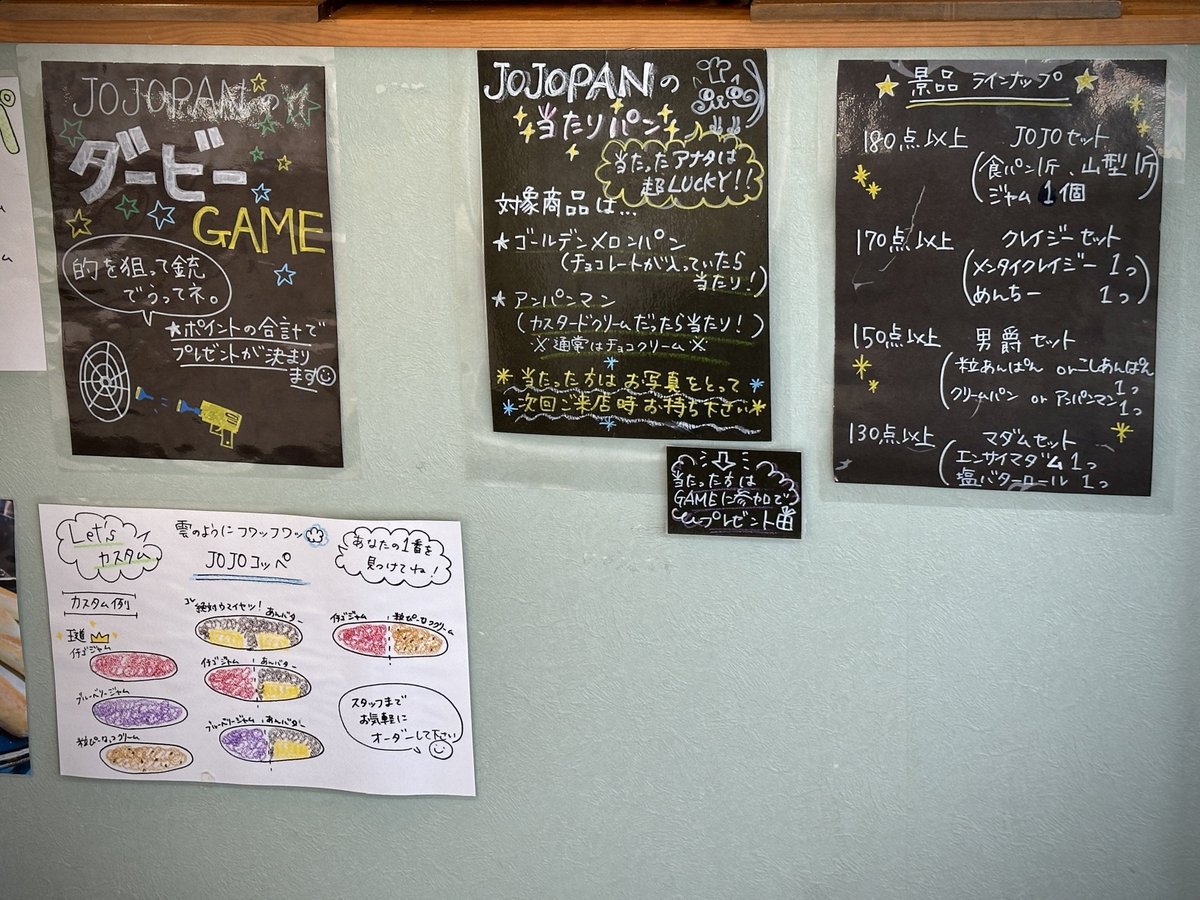 JOJOPANの
ダービー
GAME
的を狙って銃
でうってネ。
★ポイントの合計で
プレゼントが決まり
ます
JOJOPANの
当たりパン
当たったアナタは
超LUCKY!!
対象商品は…
★ゴールデンメロンパン
(チョコレートが入っていたら
当たり!)
★アンパンマン
(カスタードクリームだったら当たり!)
※通常はチョコクリーム※
当たった方はお写真をとって
次回ご来店時お持ち下さい
当たった方は
GAMEに参加で
プレゼント
景品 ラインナップ
180点以上 JOJOセット
(食パン1斤、山型1斤
ジャム1個)
170点以上 クレイジーセット
(メンタイクレイジー 1つ
めんちー 1つ)
150点以上 男爵セット
(粒あんぱん orこしあんぱん
1つ
クリームパン or アンパンマン
1つ)
130点以上 マダムセット
(エンサイマダム1つ
塩バターロール 1つ
Let's
カスタム
雲のようにフワッフワッ
JOJOコッペ
あなたの1番を
見つけてね!
カスタム例
王道
イチゴジャム
ブルーベリージャム
粒ぴーなっつクリーム
コレ絶対ウマイヤツ! あんバター
イチゴジャム あんバター
ブルーベリージャム あんバター
イチゴジャム 粒ぴーなっつクリーム
スタッフまで
お気軽に
オーダーして下さい